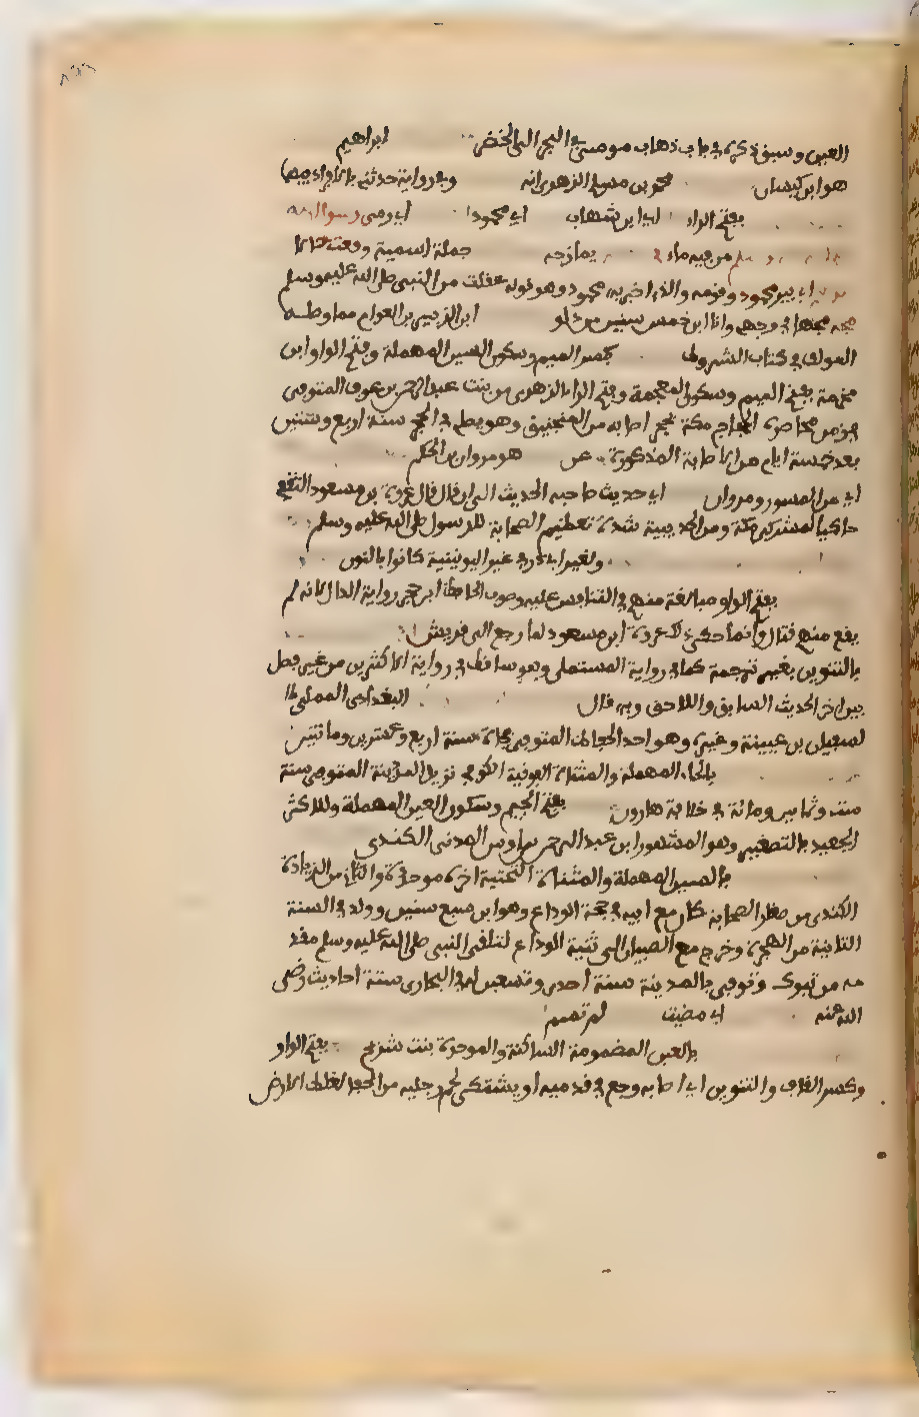 العين وسبق ذكره في باب ذهاب موسى في البحر الى الخضر ابراهيم
هو ابن كيسان محمد بن مسلم الزهري انه وفي رواية حدثني بالافراد فيهما
بفتح الراء اي ابن شهاب اي محمود اي رمى رسول الله
من فيه ماء يمازحه جملة اسمية وقعت حالا
اي بير محمود وقومه والذي اخبر به محمود وهو قوله عقلت من النبي صلى الله عليه وسلم
مجة مجها في وجهي وانا ابن خمس سنين من دلو ابن الزبير بن العوام مما وصله
المولف في كتاب الشروط بكسر الميم وسكون السين المهملة وفتح الواو ابن
مخرمة بفتح الميم وسكون المعجمة وفتح الراء الزهري من بنت عبد الرحمن بن عوف المتوفى
في من محاصرة الحجاج مكة بحجر اصابه من المنجنيق وهو يصلي في الحجر سنة اربع وستين
بعد خمسة ايام من الاصابة المذكورة عن هو مروان بن الحكم
اي من المسور ومروان اي حديث صاحبه الحديث الى ان قال قال عروة بن مسعود الثقفي
حاكيا لمشركي مكة ومن الحديبية شدة تعظيم الصحابة للرسول صلى الله عليه وسلم
ولغير ابي ذر في غير اليونينية كانوا بالنون
بفتح الواو مبالغة منهم في التنافس عليه وصوب الحافظ ابن حجر رواية الدال لانه لم
يقع منهم قتال وانما حكى ذلك عروة ابن مسعود لما رجع الى قريش
بالتنوين بغير ترجمة كما في رواية المستملي وهو ساقط في رواية الاكثرين من غير فصل
بين اخر الحديث السابق واللاحق وبه قال البغدادي المملي
لسفيان بن عيينة وغيره وهو احد الحفاظ المتوفى فجاة سنة اربع وعشرين ومائتين
بالحاء المهملة والمثناة الفوقية الكوفي نزيل المدينة المتوفى سنة
ست وثمانين ومائة في خلافة هارون بفتح الجيم وسكون العين المهملة وللاكثر
الجعيد بالتصغير وهو المشهور ابن عبد الرحمن بن اوس المدني الكندي
بالسين المهملة والمثناة التحتية اخره موحدة و من الزيادة
الكندي من صغار الصحابة كان مع ابيه في حجة الوداع وهو ابن سبع سنين وولد في السنة
الثانية من الهجرة وخرج مع الصبيان الى ثنية الوداع لتلقي النبي صلى الله عليه وسلم مقد
مه من تبوك وتوفي بالمدينة سنة احدى وتسعين له في البخاري ستة احاديث رضي
الله عنه اي مضيت لم تسم
بالعين المضمومة الساكنة والموحدة بنت شريح بفتح الواو
وكسر القاف والتنوين اي اصابه وجع في قدميه او يشتكي لحم رجليه من الحفا لغلظ الارض